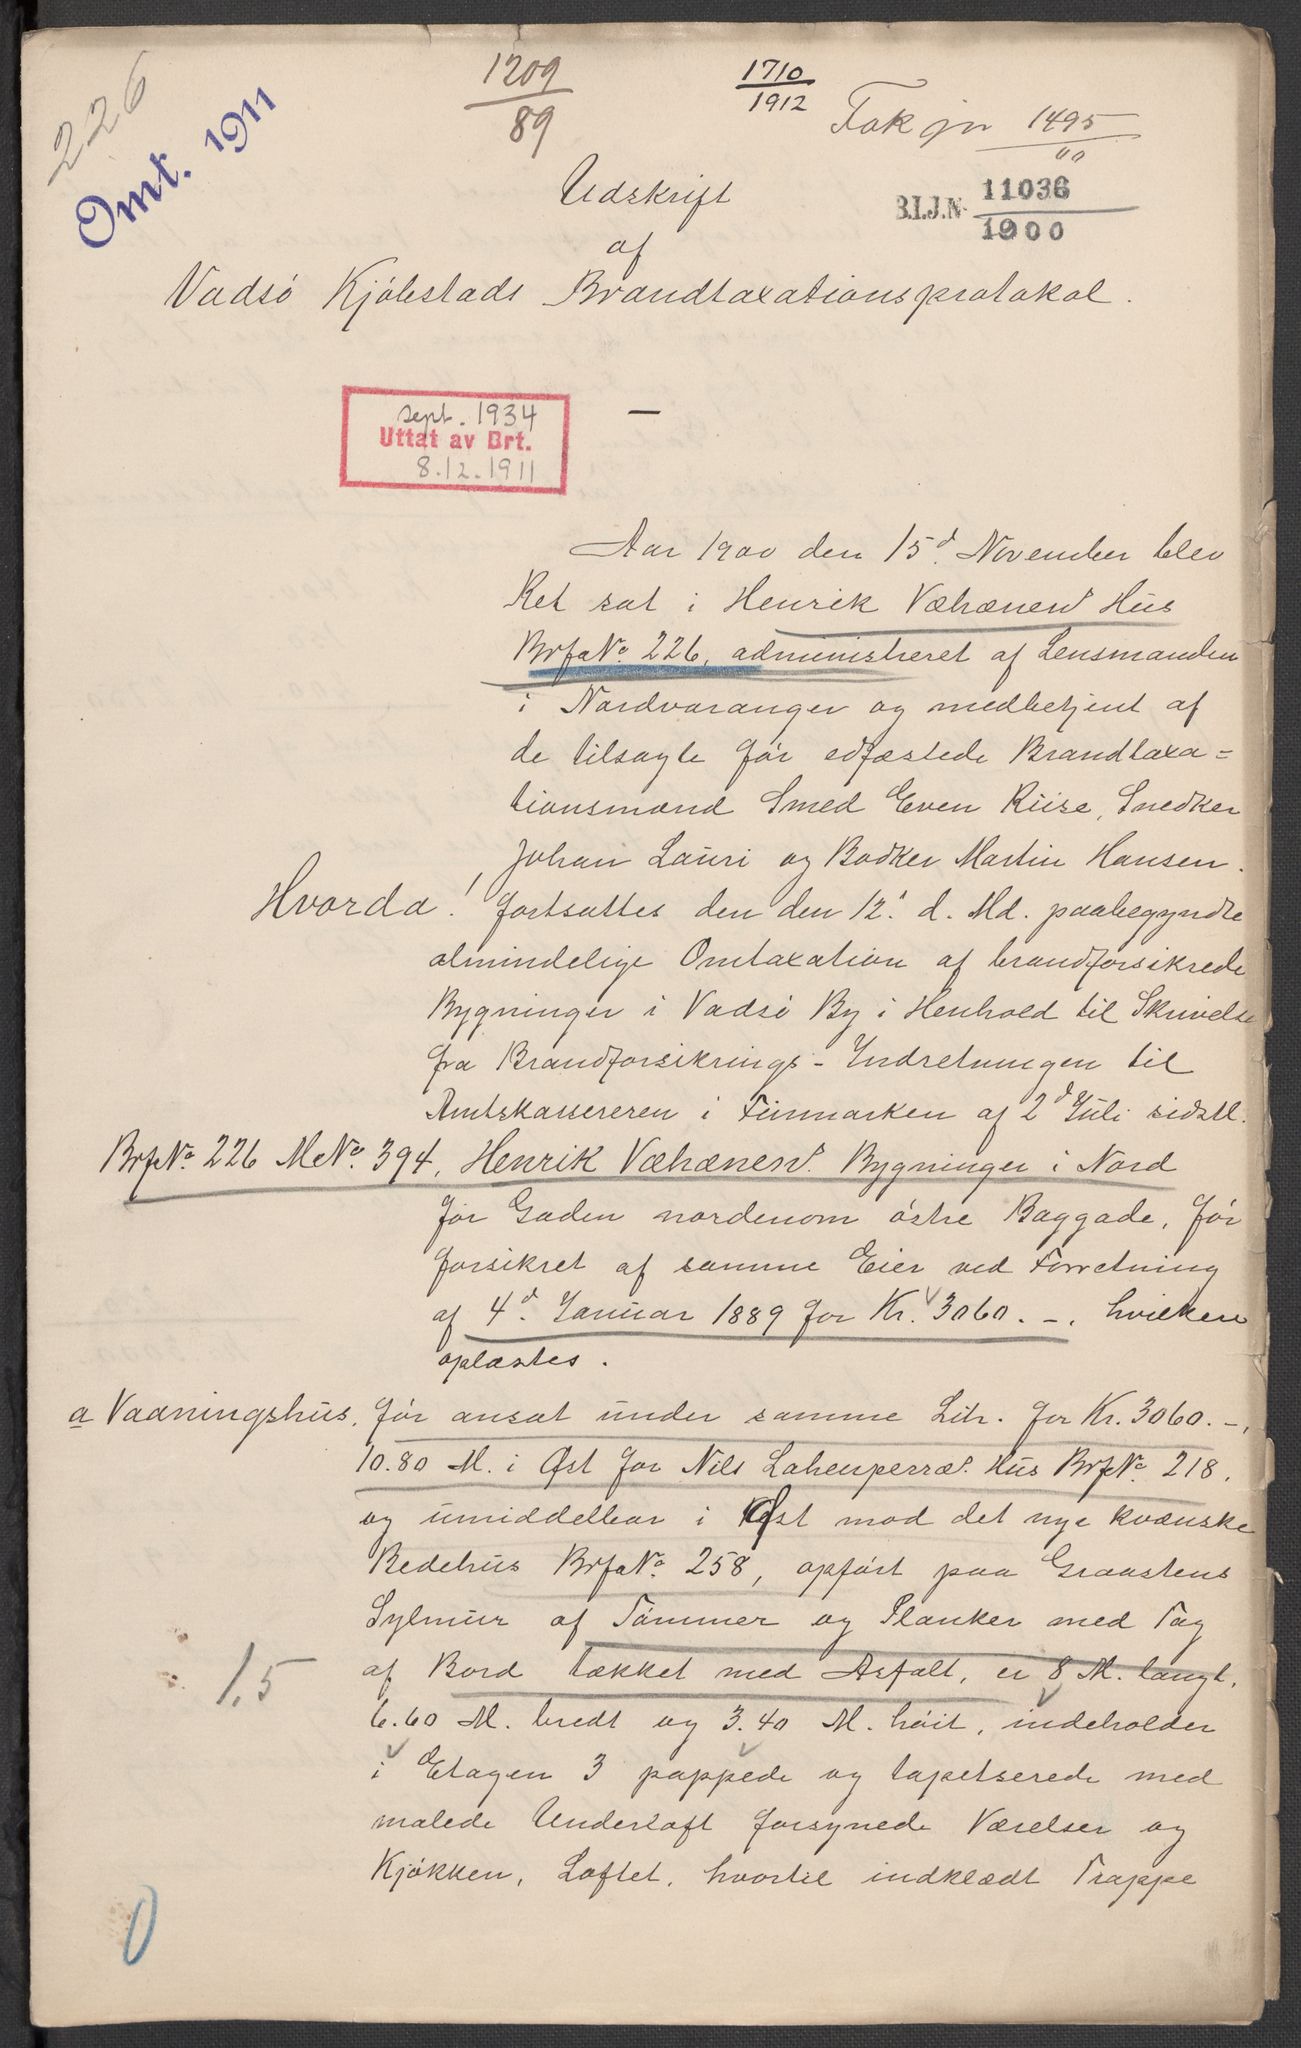 226
Omt. 1911
1209
89
1710
1912
Tak jn 1495
00
B.I.J.N. 11036
1900
Udskrift
af
Vadsö Kjöbstads Brandtaxationsprotokol.
sept. 1934
Uttat av Brt.
8.12.1911
Aar 1900 den 15d. November blev
Ret sat i Henrik Væhænens Hus
BrfaNo. 226, administreret af Lensmanden
i Nordvaranger og medbetjent af
de tilsagte för edfæstede Brandtaxa=
tionsmænd Smed Even Riise, Snedker
Johan Lauri og Bödker Martin Hansen.
Hvorda! fortsattes den den 12. d. Md. paabegyndte
almindelige Omtaxation af brandforsikrede
Bygninger i Vadsö By i Henhold til Skrivelse
fra Brandforsikrings-Indretningen til
Amtskassereren i Finmarken af 2d Juli sidstl.
BrfNo. 226 MNo. 394, Henrik Væhænens Bygninger i Nord
for Gaden nordenom östre Baggade, för
forsikret af samme Eier ved Forretning
af 4d. Januar 1889 for Kr. 3060.-. hvilken
oplæstes.
a Vaaningshus, för ansat under samme Litr. for Kr. 3060.-,
10.80 M. i Øst for Nils Lahenperræs Hus BrfNo. 218,
og umiddelbar i Øst mod det nye kvænske
Bedehus BrfaNo. 258, opfört paa Graastens
Sylmur af Tömmer og Planker med Tag
af Bord tækket med Asfalt, er 8 M. langt,
1,5
6.60 M. bredt og 3.40 M. höit, indeholder
i Etagen 3 pappede og tapetserede med
malede Underloft forsynede Værelser og
Kjökken, Loftet, hvortil indklædt Trappe
0